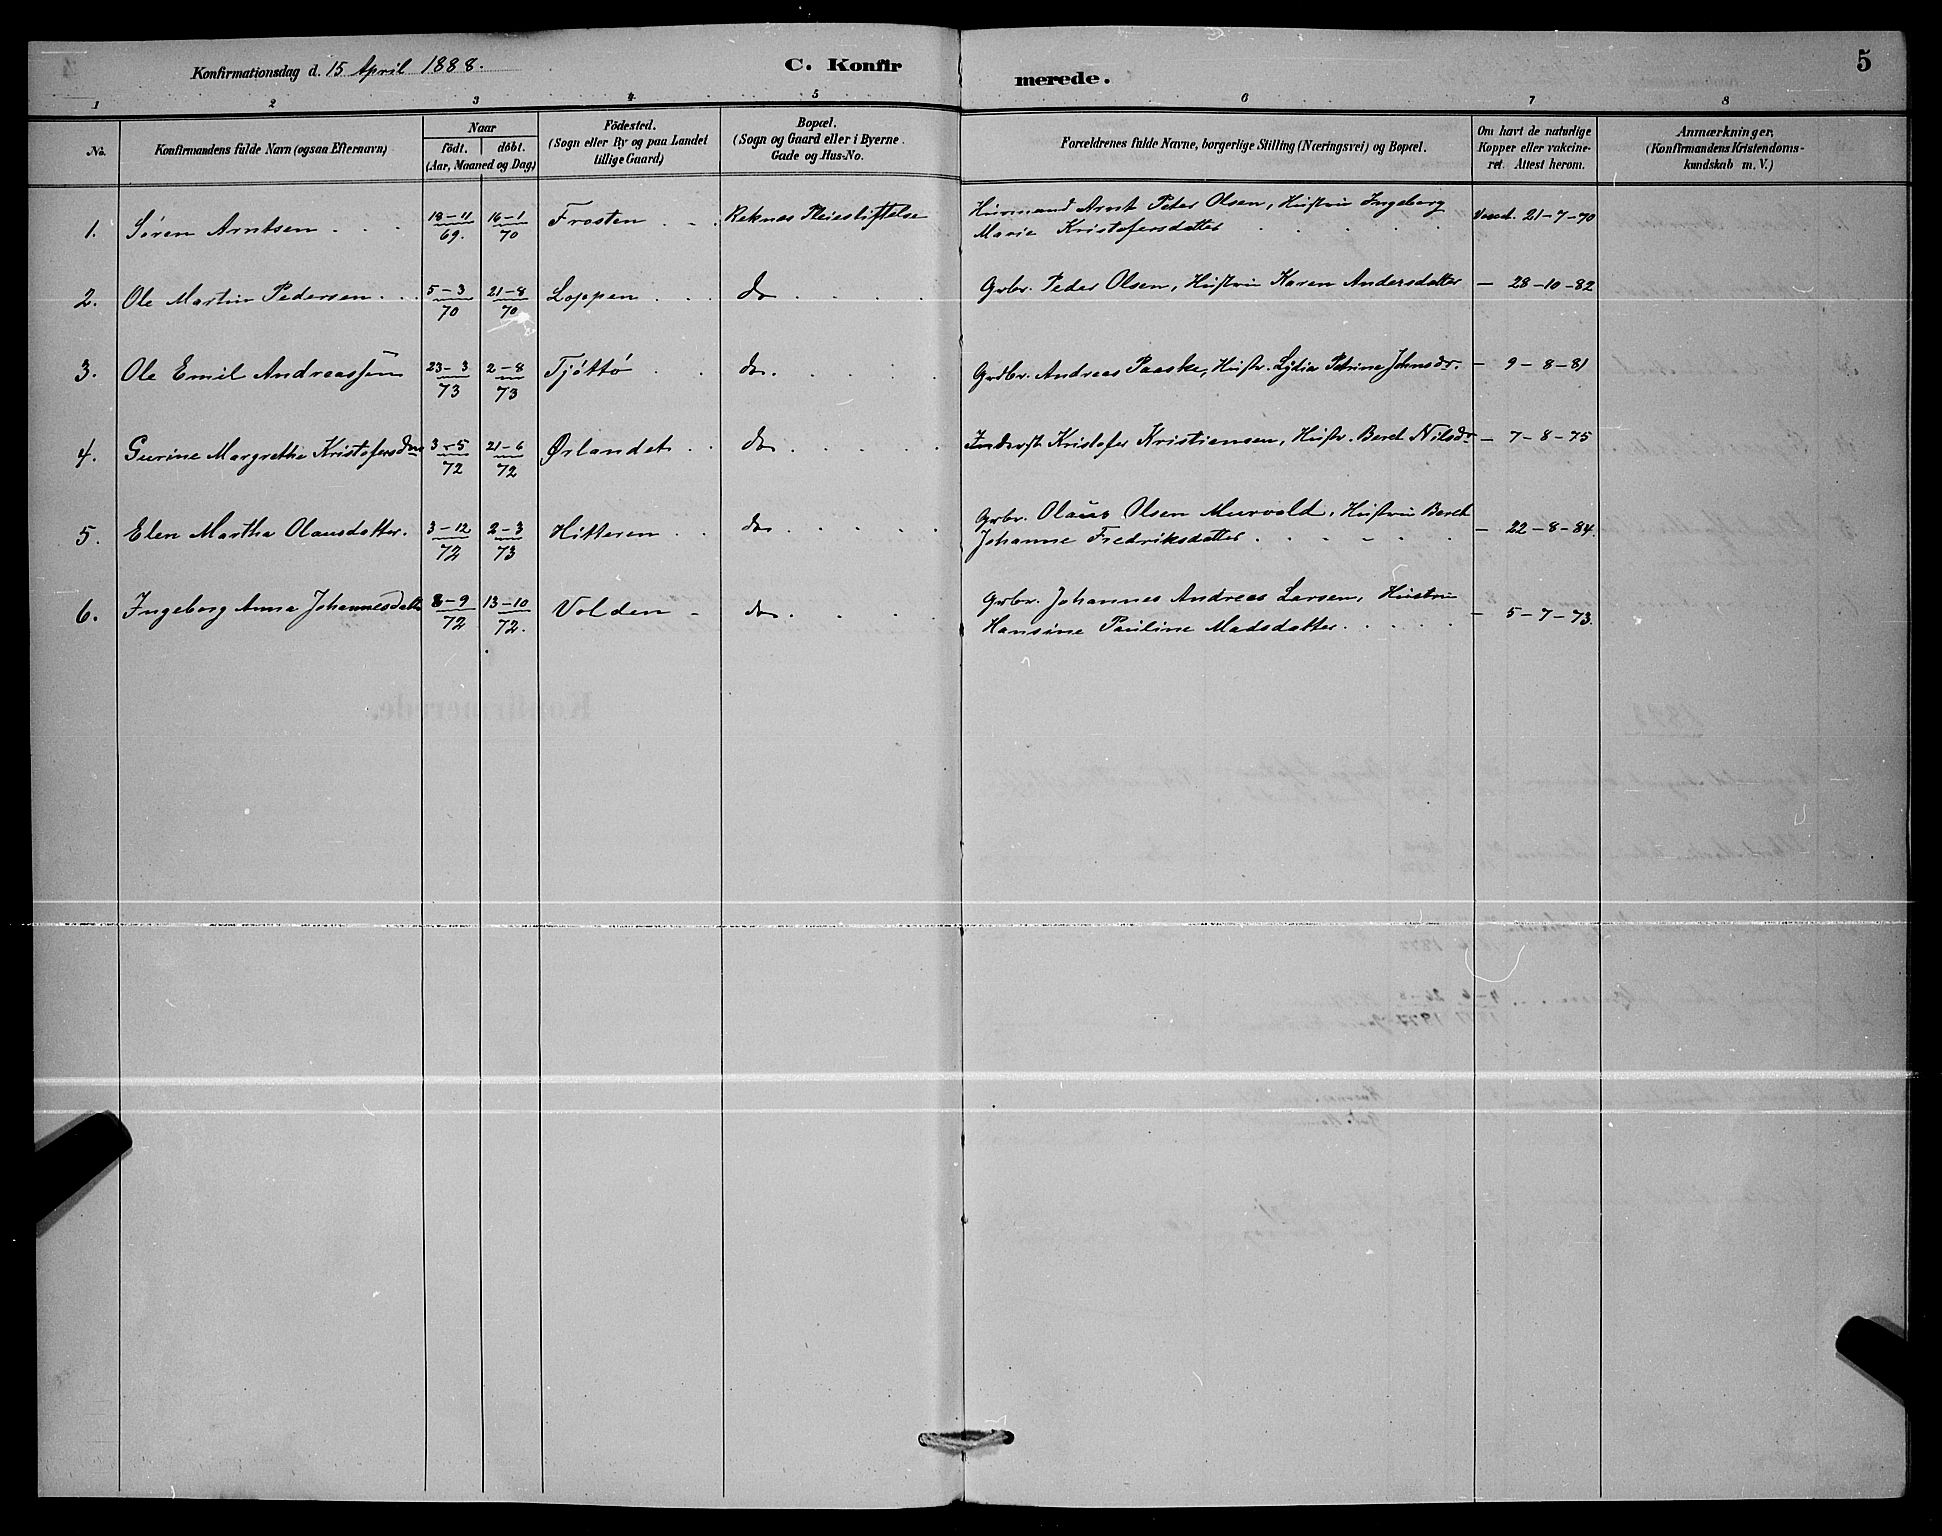 Konfirmationsdag d. 15 April 1888.
C. Konfirmerede.
5
1 2 3 4 5 6 7 8
No.
Konfirmandens fulde Navn (ogsaa Efternavn)
Naar
födt. döbt.
(Aar, Maaned og Dag)
Födested.
(Sogn eller By og paa Landet
tillige Gaard)
Bopæl.
(Sogn og Gaard eller i Byerne
Gade og Hus-No.
Forældrenes fulde Navne, borgerlige Stilling (Næringsvei) og Bopæl.
Om havt de naturlige
Kopper eller vakcine-
ret. Attest herom.
Anmærkninger.
(Konfirmandens Kristendoms-
kundskab m. V.)
1. Sören Arntsen . . . 18-11 69. 16-1 70 Frosten . . Reknes Pleiestiftelse Husmand Arnt Peter Olsen, Hustru Ingeborg
Marie Kristofersdatter Vacc. 21-7-70
2. Ole Martin Pedersen . . 5-3 70 21-8 70 Loppen . . . do . . . . Grbr. Peder Olsen, Hustru Karen Andersdatter — 28-10-82
3. Ole Emil Andreassen 23-3 73 2-8 73 Tjöttö . . do. . . . . Grdbr. Andreas Paaske, Hustr. Lydia Petrine Johnsdr. — 9-8-81
4. Gurine Margrethe Kristofersdtr 3-5 72 21-6 72 Ørlandet . . do . . . . . Inderst Kristofer Kristiensen, Hustr. Beret Nilsdr — 7-8-75
5. Elen Martha Olausdatter. 3-12 72 2-3 73 Hitteren . . do . . . . . Grbr. Olaus Olsen Murvold, Hustru Beret
Johanne Fredriksdatter . . . . . — 22-8-84.
6. Ingeborg Anna Johannesdatter 8-9 72 13-10 72. Volden - do . . . Grbr. Johannes Andreas Larsen, Hustru
Hansine Pauline Madsdatter . . . . . — 5-7-73.